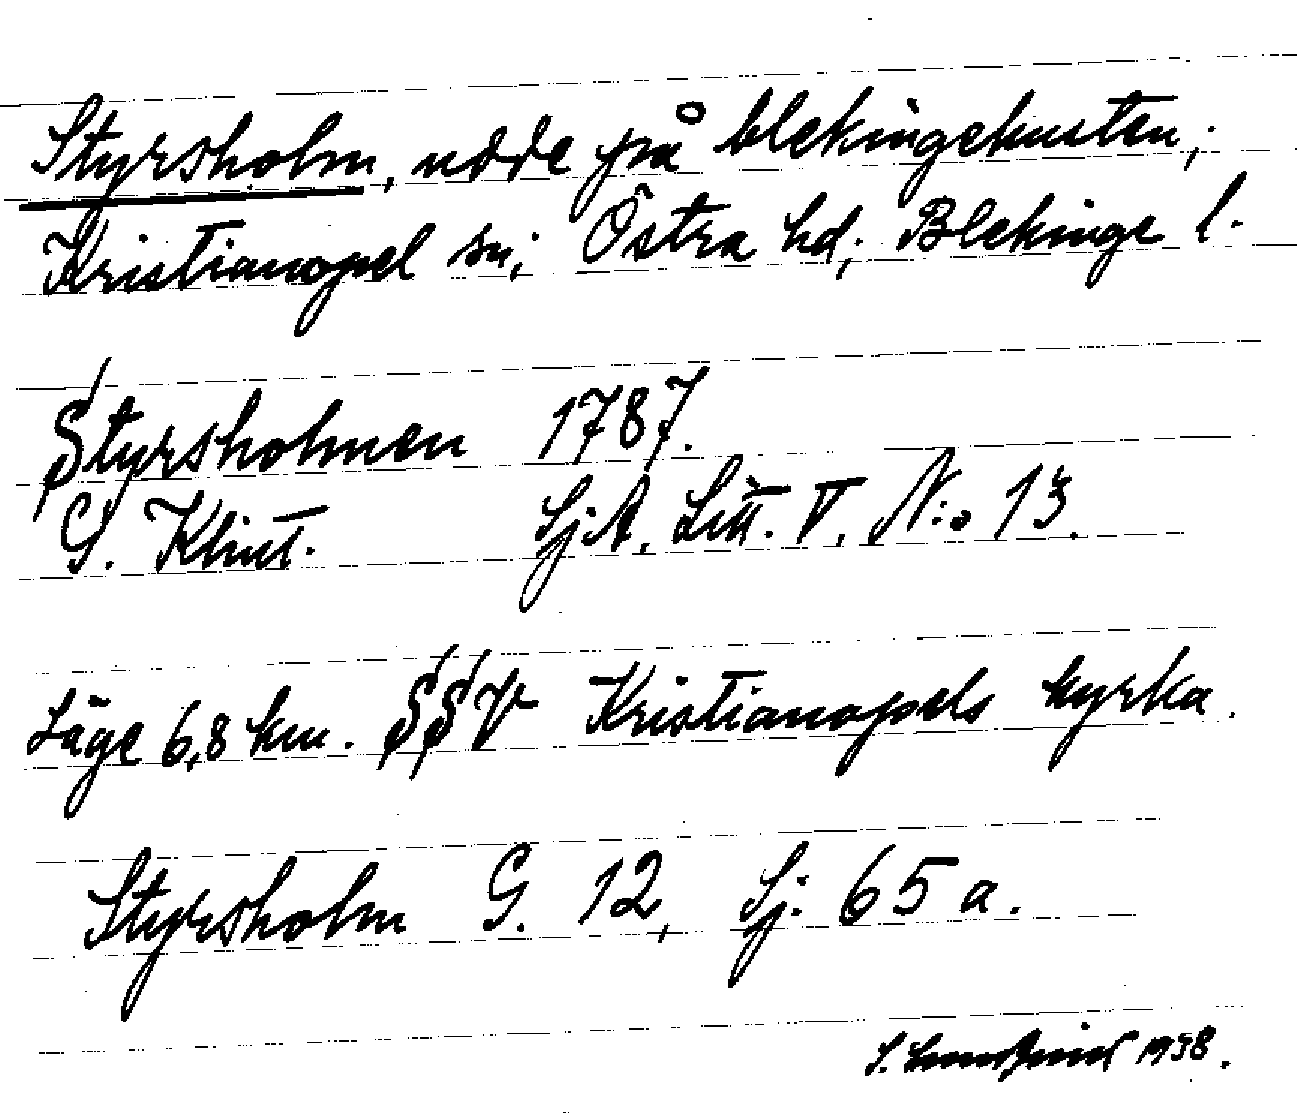 Styrsholm, udde på blekingekusten,
Kristianopel sn, Östra hd, Blekinge l.
Styrsholmen 1787.
G. Klint. SjA. Litt. V. N:o 13.
Läge 6,8 km. SSV Kristianopels kyrka.
Styrsholm G. 12, Sj: 65 a.
S. 1938.